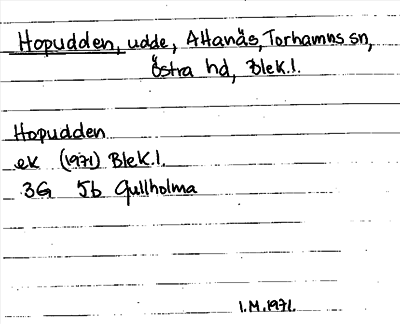 Hopudden, udde, Attanäs, Torhamns sn,
Östra hd, Blek.l.
Hopudden
ek (1971) Blek.l.
3G 5b Gullholma
I.M.1971.